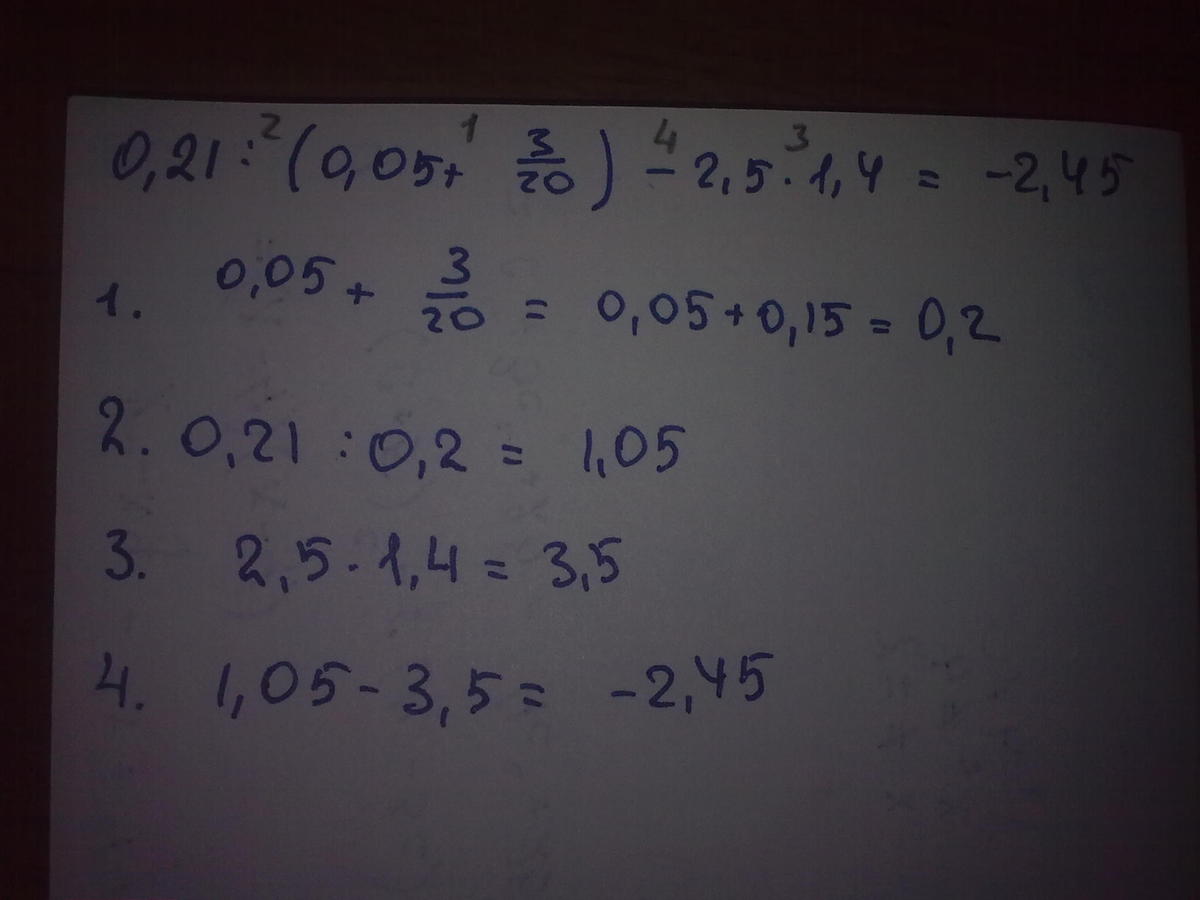 0,21 :² (0,05 +¹ 3/20) -⁴ 2,5 ·³ 1,4 = -2,45
1. 0,05 + 3/20 = 0,05 + 0,15 = 0,2
2. 0,21 : 0,2 = 1,05
3. 2,5 · 1,4 = 3,5
4. 1,05 - 3,5 = -2,45